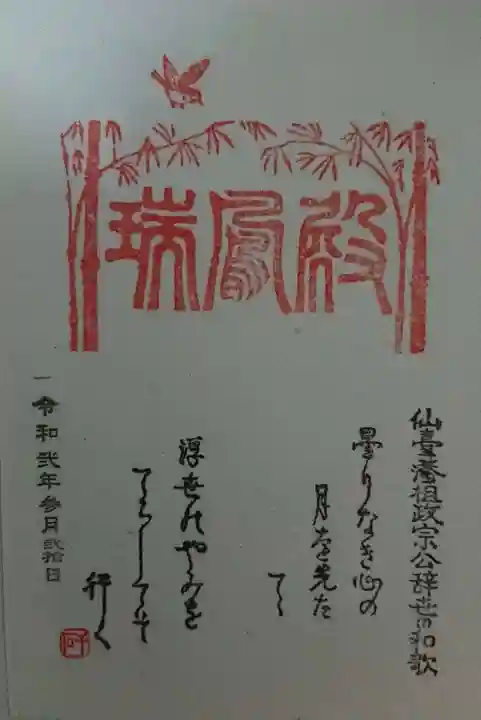 瑞鳳殿
仙臺藩祖政宗公辞世の和歌
曇りなき心の
月を先だ
てゝ
浮世のやみを
てらしてぞ
行く
令和弐年参月弐拾日